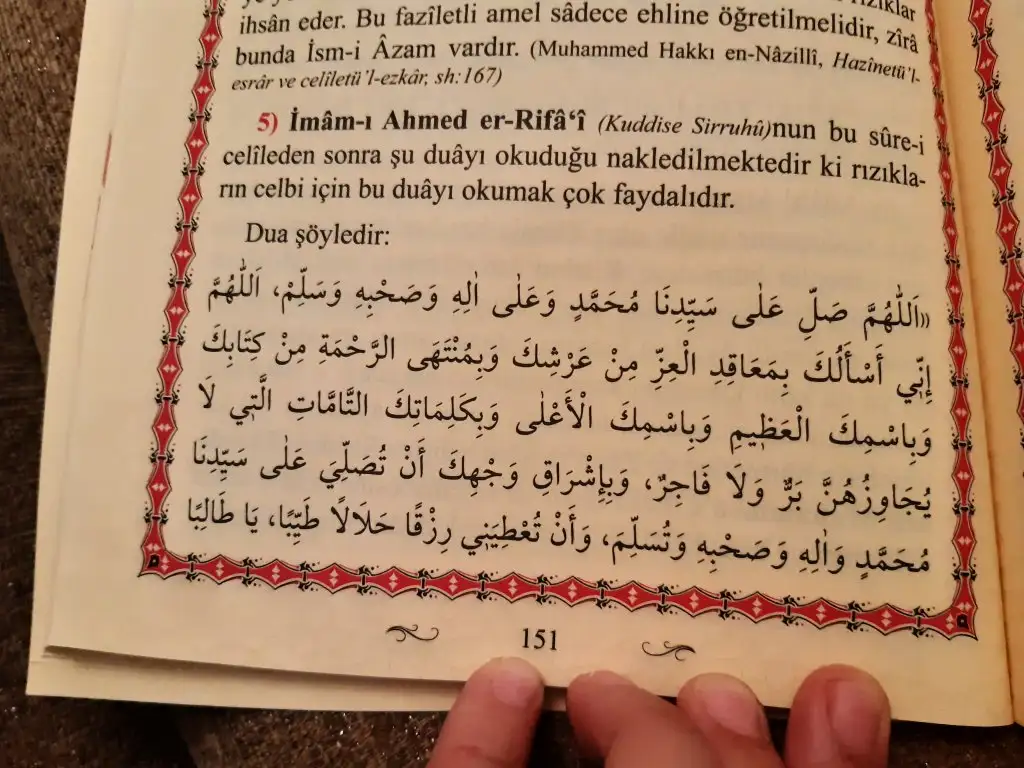 rızıklar
ihsân eder. Bu fazîletli amel sâdece ehline öğretilmelidir, zîrâ
bunda İsm-i Âzam vardır. (Muhammed Hakkı en-Nâzillî, Hazînetü'l-
esrâr ve celîletü'l-ezkâr, sh:167)
5) İmâm-ı Ahmed er-Rifâ‘î (Kuddise Sirruhû)nun bu sûre-i
celîleden sonra şu duâyı okuduğu nakledilmektedir ki rızıkla-
rın celbi için bu duâyı okumak çok faydalıdır.
Dua şöyledir:
«اَللّٰهُمَّ صَلِّ عَلٰى سَيِّدِنَا مُحَمَّدٍ وَعَلٰى اٰلِهِ وَصَحْبِهِ وَسَلِّمْ، اَللّٰهُمَّ
إِنِّي أَسْأَلُكَ بِمَعَاقِدِ الْعِزِّ مِنْ عَرْشِكَ وَبِمُنْتَهَى الرَّحْمَةِ مِنْ كِتَابِكَ
وَبِاسْمِكَ الْعَظِيمِ وَبِاسْمِكَ الْأَعْلٰى وَبِكَلِمَاتِكَ التَّامَّاتِ الَّتِي لَا
يُجَاوِزُهُنَّ بَرٌّ وَلَا فَاجِرٌ، وَبِإِشْرَاقِ وَجْهِكَ أَنْ تُصَلِّيَ عَلٰى سَيِّدِنَا
مُحَمَّدٍ وَاٰلِهِ وَصَحْبِهِ وَتُسَلِّمَ، وَأَنْ تُعْطِيَنِي رِزْقًا حَلَالًا طَيِّبًا، يَا طَالِبًا
151